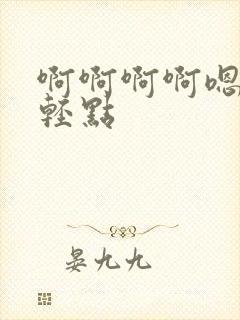 啊啊啊啊嗯
輕點
晏九九